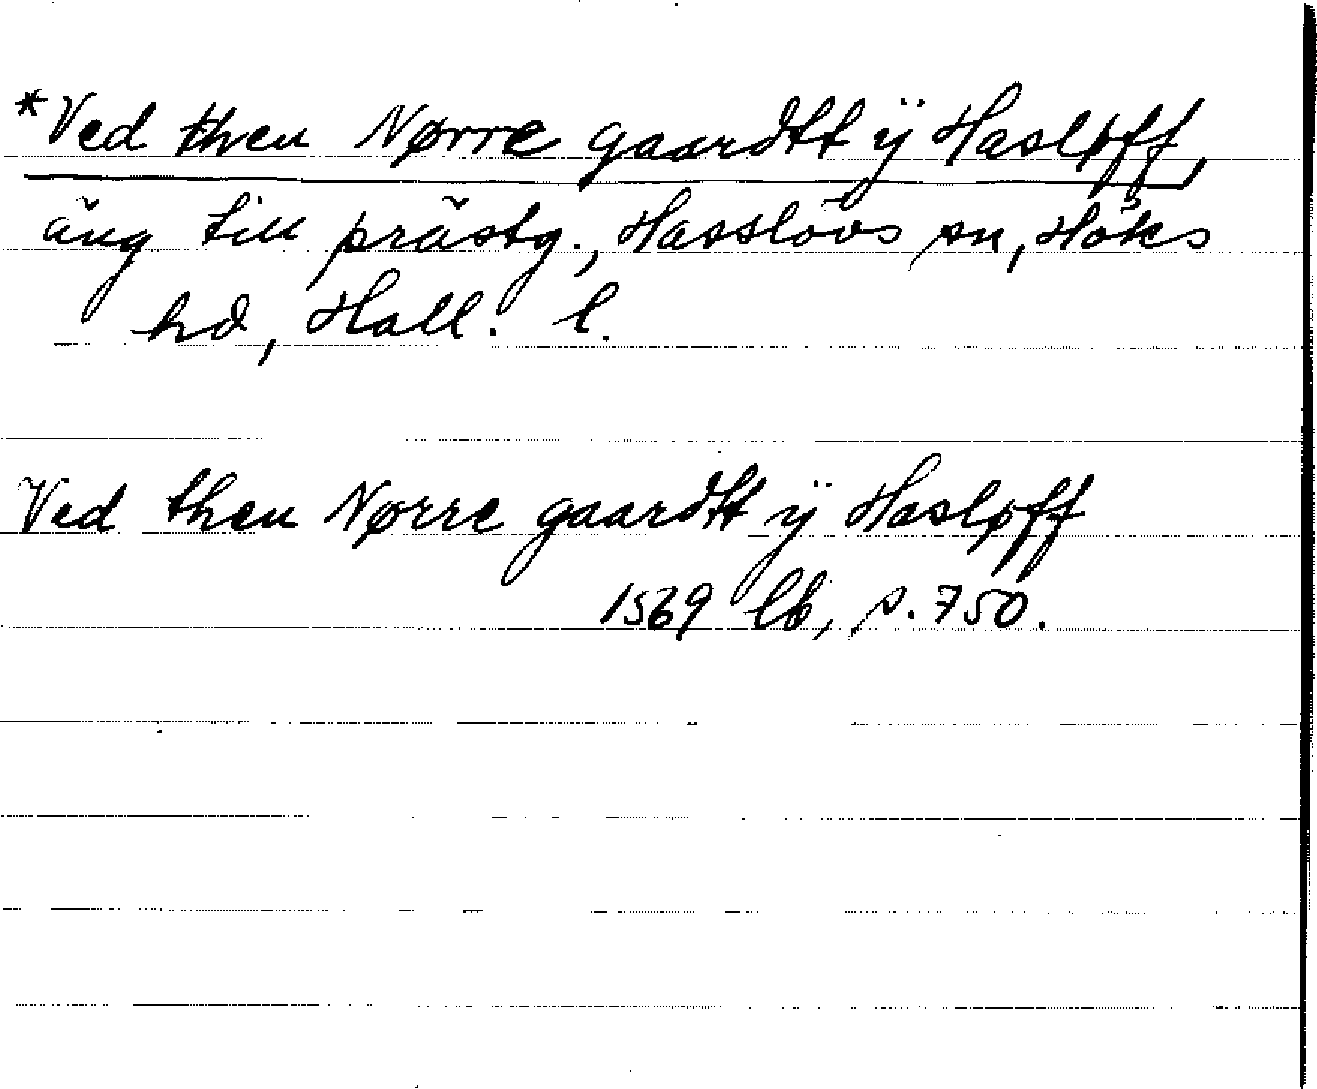 *Ved then Nørre gaardtt ÿ Hasløff,
äng till prästg., Hasslövs sn, Höks
hd, Hall. l.
Ved then Nørre gaardtt ÿ Hasløff
1569 lb, s. 750.